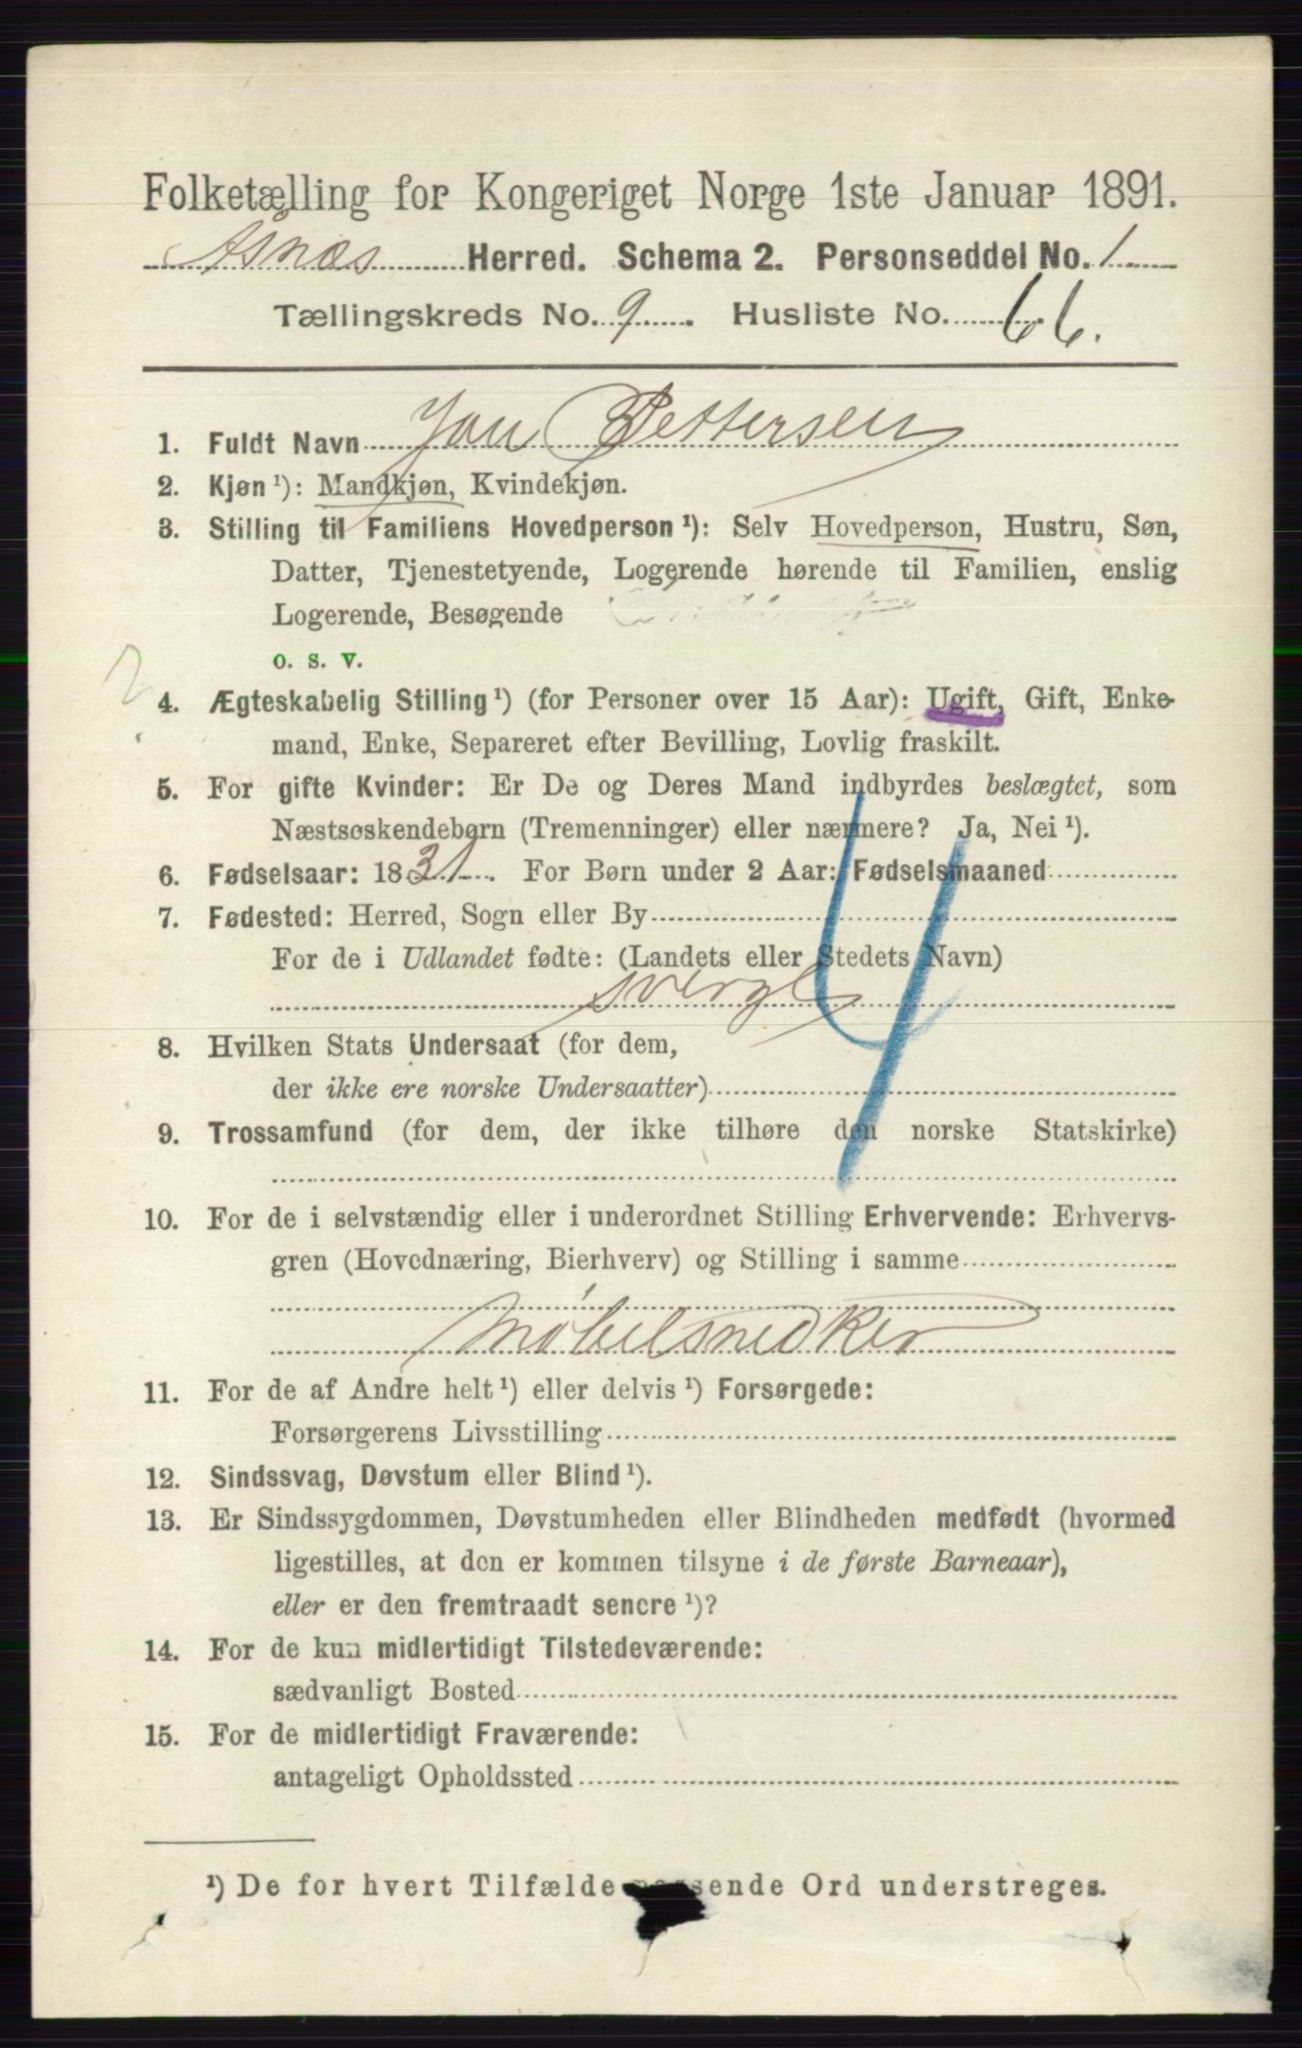 Folketælling for Kongeriget Norge 1ste Januar 1891.
Åsnes Herred. Schema 2. Personseddel No. 1
Tællingskreds No. 9. Husliste No. 66.
1. Fuldt Navn Jon Pettersen
2. Kjøn ¹): Mandkjøn, Kvindekjøn.
3. Stilling til Familiens Hovedperson ¹): Selv Hovedperson, Hustru, Søn,
Datter, Tjenestetyende, Logerende hørende til Familien, enslig
Logerende, Besøgende
o. s. v.
2
4. Ægteskabelig Stilling ¹) (for Personer over 15 Aar): Ugift, Gift, Enke-
mand, Enke, Separeret efter Bevilling, Lovlig fraskilt.
5. For gifte Kvinder: Er De og Deres Mand indbyrdes beslægtet, som
Næstsøskendebørn (Tremenninger) eller nærmere? Ja, Nei ¹).
6. Fødselsaar: 1831. For Børn under 2 Aar: Fødselsmaaned
7. Fødested: Herred, Sogn eller By
For de i Udlandet fødte: (Landets eller Stedets Navn)
sverge
4
8. Hvilken Stats Undersaat (for dem,
der ikke ere norske Undersaatter)
9. Trossamfund (for dem, der ikke tilhøre den norske Statskirke)
10. For de i selvstændig eller i underordnet Stilling Erhvervende: Erhvervs-
gren (Hovednæring, Bierhverv) og Stilling i samme
Møbelsnedker
11. For de af Andre helt ¹) eller delvis ¹) Forsørgede:
Forsørgerens Livsstilling
12. Sindssvag, Døvstum eller Blind ¹).
13. Er Sindssygdommen, Døvstumheden eller Blindheden medfødt (hvormed
ligestilles, at den er kommen tilsyne i de første Barneaar),
eller er den fremtraadt senere ¹)?
14. For de kun midlertidigt Tilstedeværende:
sædvanligt Bosted
15. For de midlertidigt Fraværende:
antageligt Opholdssted
¹) De for hvert Tilfælde passende Ord understreges.